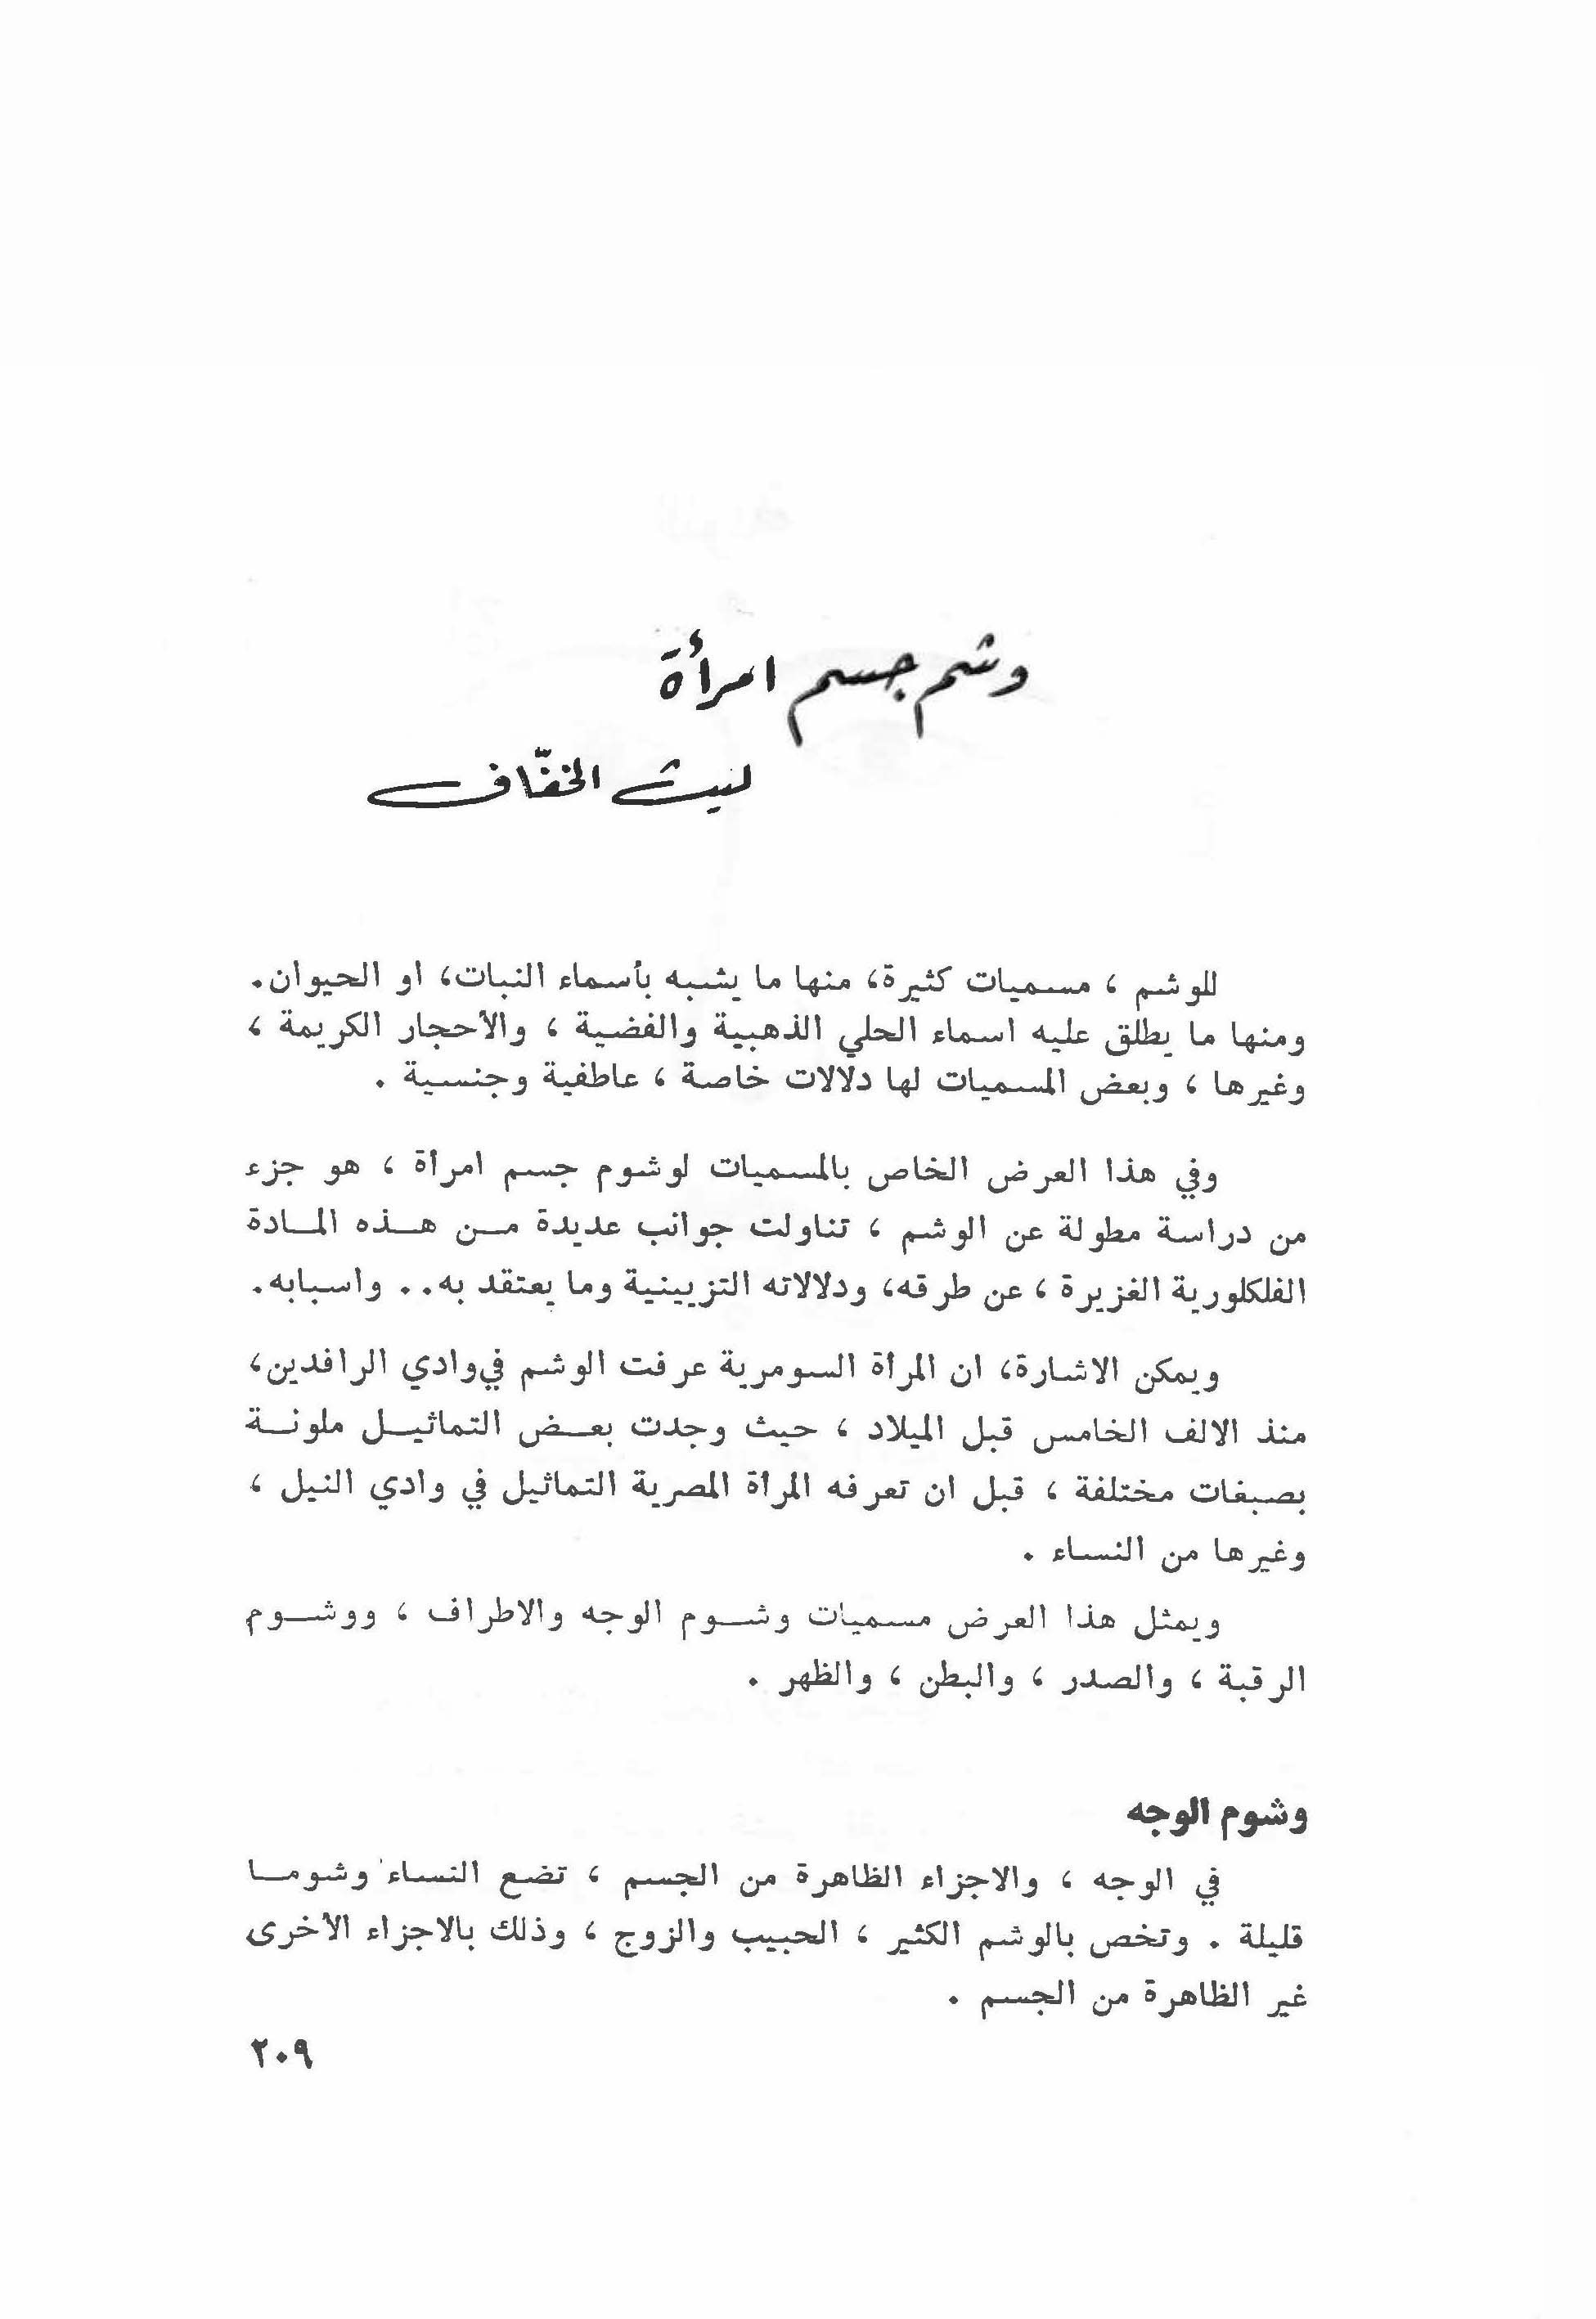 وشم جسم امرأة
ليث الخفّاف
للوشم ، مسميات كثيرة، منها ما يشبه بأسماء النبات، او الحيوان.
ومنها ما يطلق عليه اسماء الحلي الذهبية والفضية ، والأحجار الكريمة ،
وغيرها ، وبعض المسميات لها دلالات خاصة ، عاطفية وجنسية .
وفي هذا العرض الخاص بالمسميات لوشوم جسم امرأة ، هو جزء
من دراسة مطولة عن الوشم ، تناولت جوانب عديدة مـن هـذه المـادة
الفلكلورية الغزيرة ، عن طرقه، ودلالاته التزيينية وما يعتقد به.. واسبابه.
ويمكن الاشارة، ان المرأة السومرية عرفت الوشم في وادي الرافدين،
منذ الالف الخامس قبل الميلاد ، حيث وجدت بعـض التماثيـل ملونـة
بصبغات مختلفة ، قبل ان تعرفه المرأة المصرية التماثيل في وادي النيل ،
وغيرها من النساء .
ويمثل هذا العرض مسميات وشـوم الوجه والاطراف ، ووشـوم
الرقبة ، والصدر ، والبطن ، والظهر .
وشوم الوجه
في الوجه ، والاجزاء الظاهرة من الجسم ، تضع النساء وشومـا
قليلة . وتخص بالوشم الكثير ، الحبيب والزوج ، وذلك بالاجزاء الأخرى
غير الظاهرة من الجسم .
٢٠٩